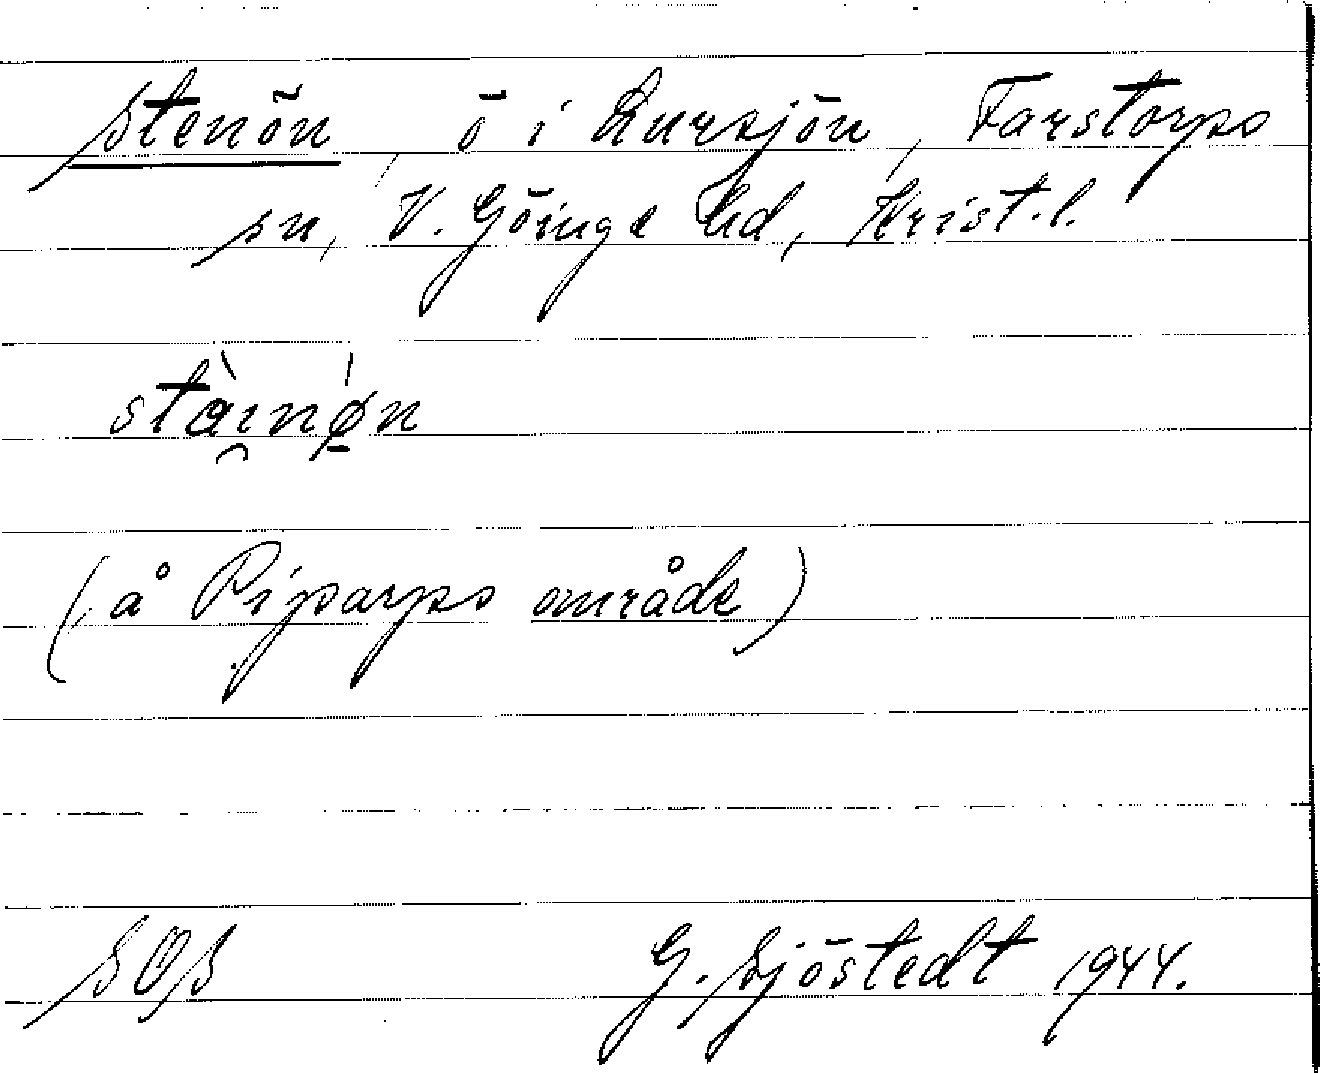 Stenön, ö i Lursjön, Farstorps
sn, V. Göinge hd, Krist.l.
stàinǿn
(å Riparps område)
SOS G. Sjöstedt 1944.